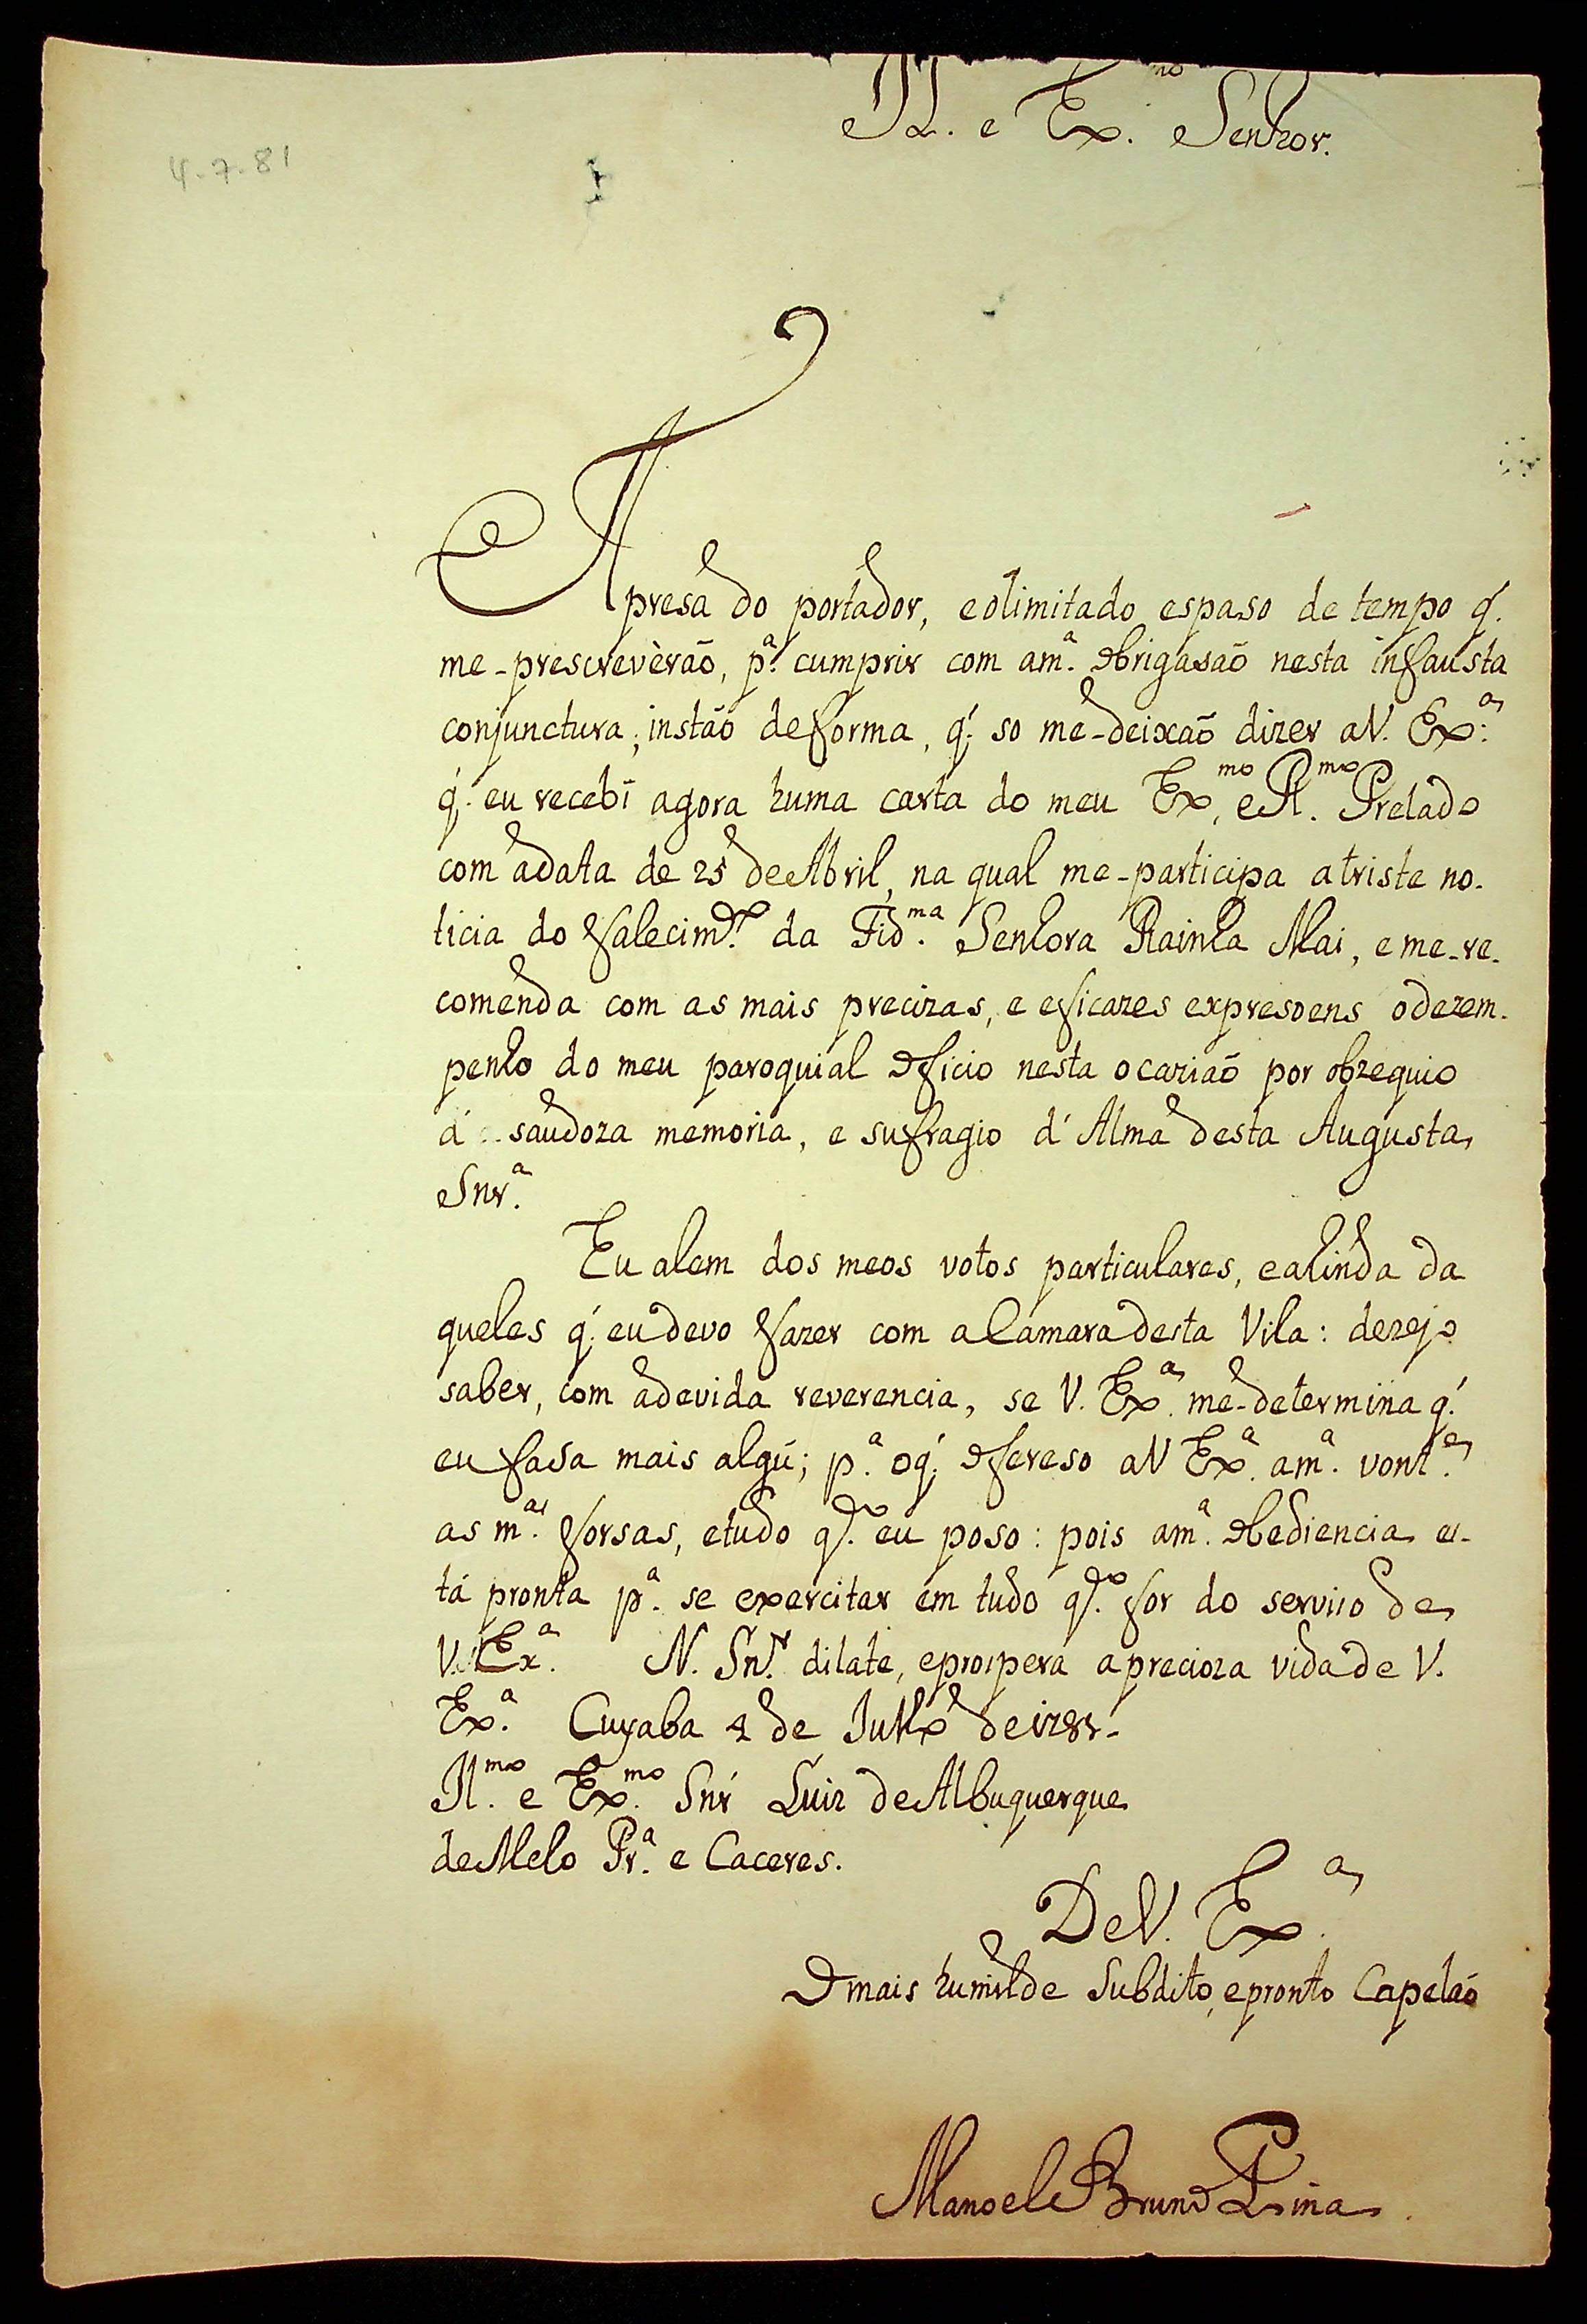 Il. e Ex.mo Senhor.
4-7-81
A presa do portador, e o limitado espaso de tempo q.
me-prescrevèrão, p.ª cumprir com a m.ª obrigasaõ nesta infausta
conjunctura; instão de forma, q. so me-deixaõ dizer a V. Ex.ª
q. eu recebi agora huma carta do meu Ex.mo, e R.mo Prelado
com a data de 25 de Abril, na qual me-participa a triste no-
ticia do falecim.to da Fid.ma Senhora Rainha Mai, e me-re-
comenda com as mais precizas, e eficazes expresoens o dezem-
penho do meu paroquial oficio nesta ocaziaõ por obzequio
á saudoza memoria, e sufragio d'Alma desta Augusta
Snr.ª
Eu alem dos meos votos particulares, e alinda da
queles q. eu devo fazer com a Camara desta Vila: dezejo
saber, com a devida reverencia, se V. Ex.ª me-determina q.
eu fasa mais algũ; p.ª o q. ofereso a V Ex.ª a m.ª vont.e
as m.as forsas, e tudo q.to eu poso: pois a m.ª obediencia es-
tá pronta p.ª se exercitar em tudo q.to for do serviso de
V. Ex.ª N. Sn.r dilate, e prospera a precioza vida de V.
Ex.ª Cuyaba 4 de Julho de 1781-
Il.mo e Ex.mo Snr Luiz de Albuquerque
de Melo Pr.ª e Caceres.
De V. Ex.ª
O mais humilde Subdito, e pronto Capelaõ
Manoel Bruno Pina.